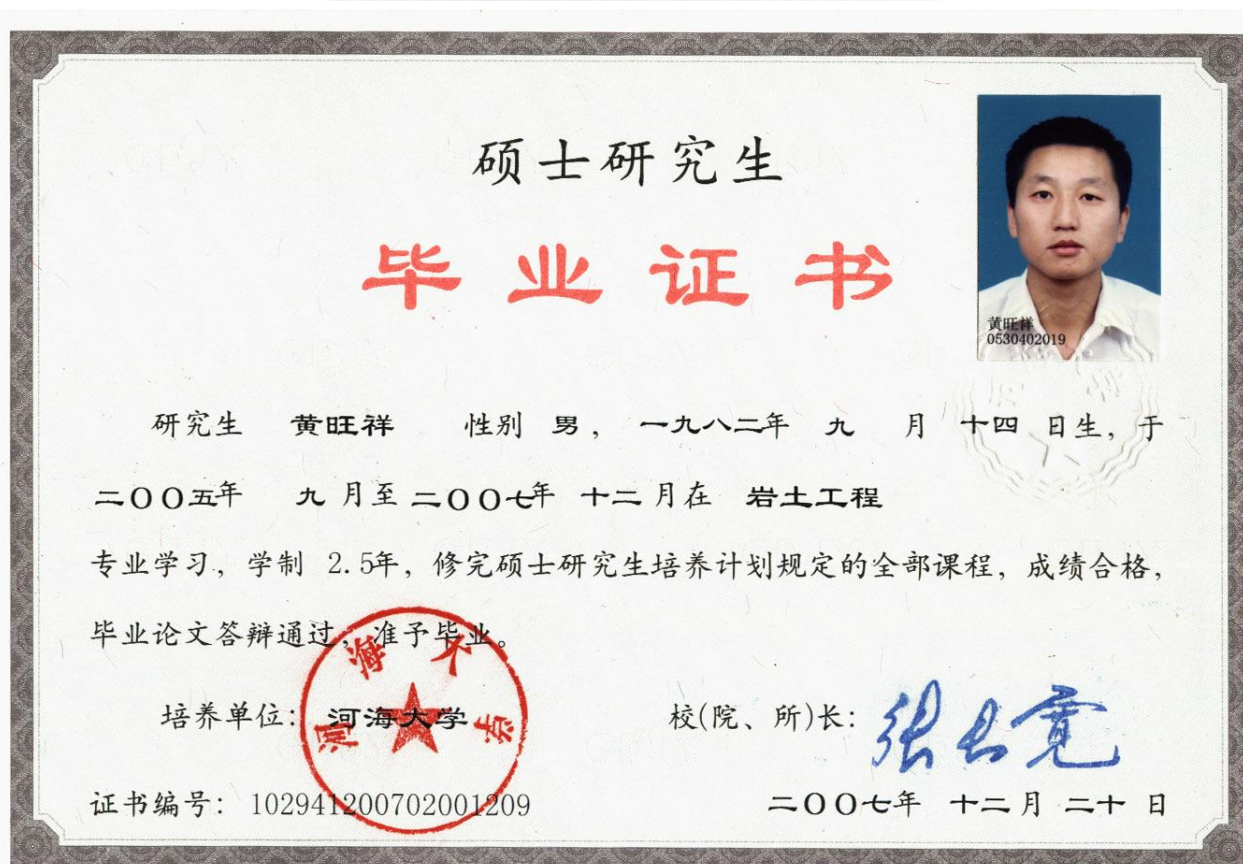 硕士研究生
毕业证书
黄旺祥
0530402019
研究生 黄旺祥 性别 男, 一九八二年 九 月 十四 日生, 于
二〇〇五年 九 月至 二〇〇七年 十二 月在 岩土工程
专业学习, 学制 2.5年, 修完硕士研究生培养计划规定的全部课程, 成绩合格,
毕业论文答辩通过, 准予毕业。
培养单位: 河海大学
河海大学
校(院、所)长: 张长宽
证书编号: 102941200702001209
二〇〇七年 十二 月 二十 日